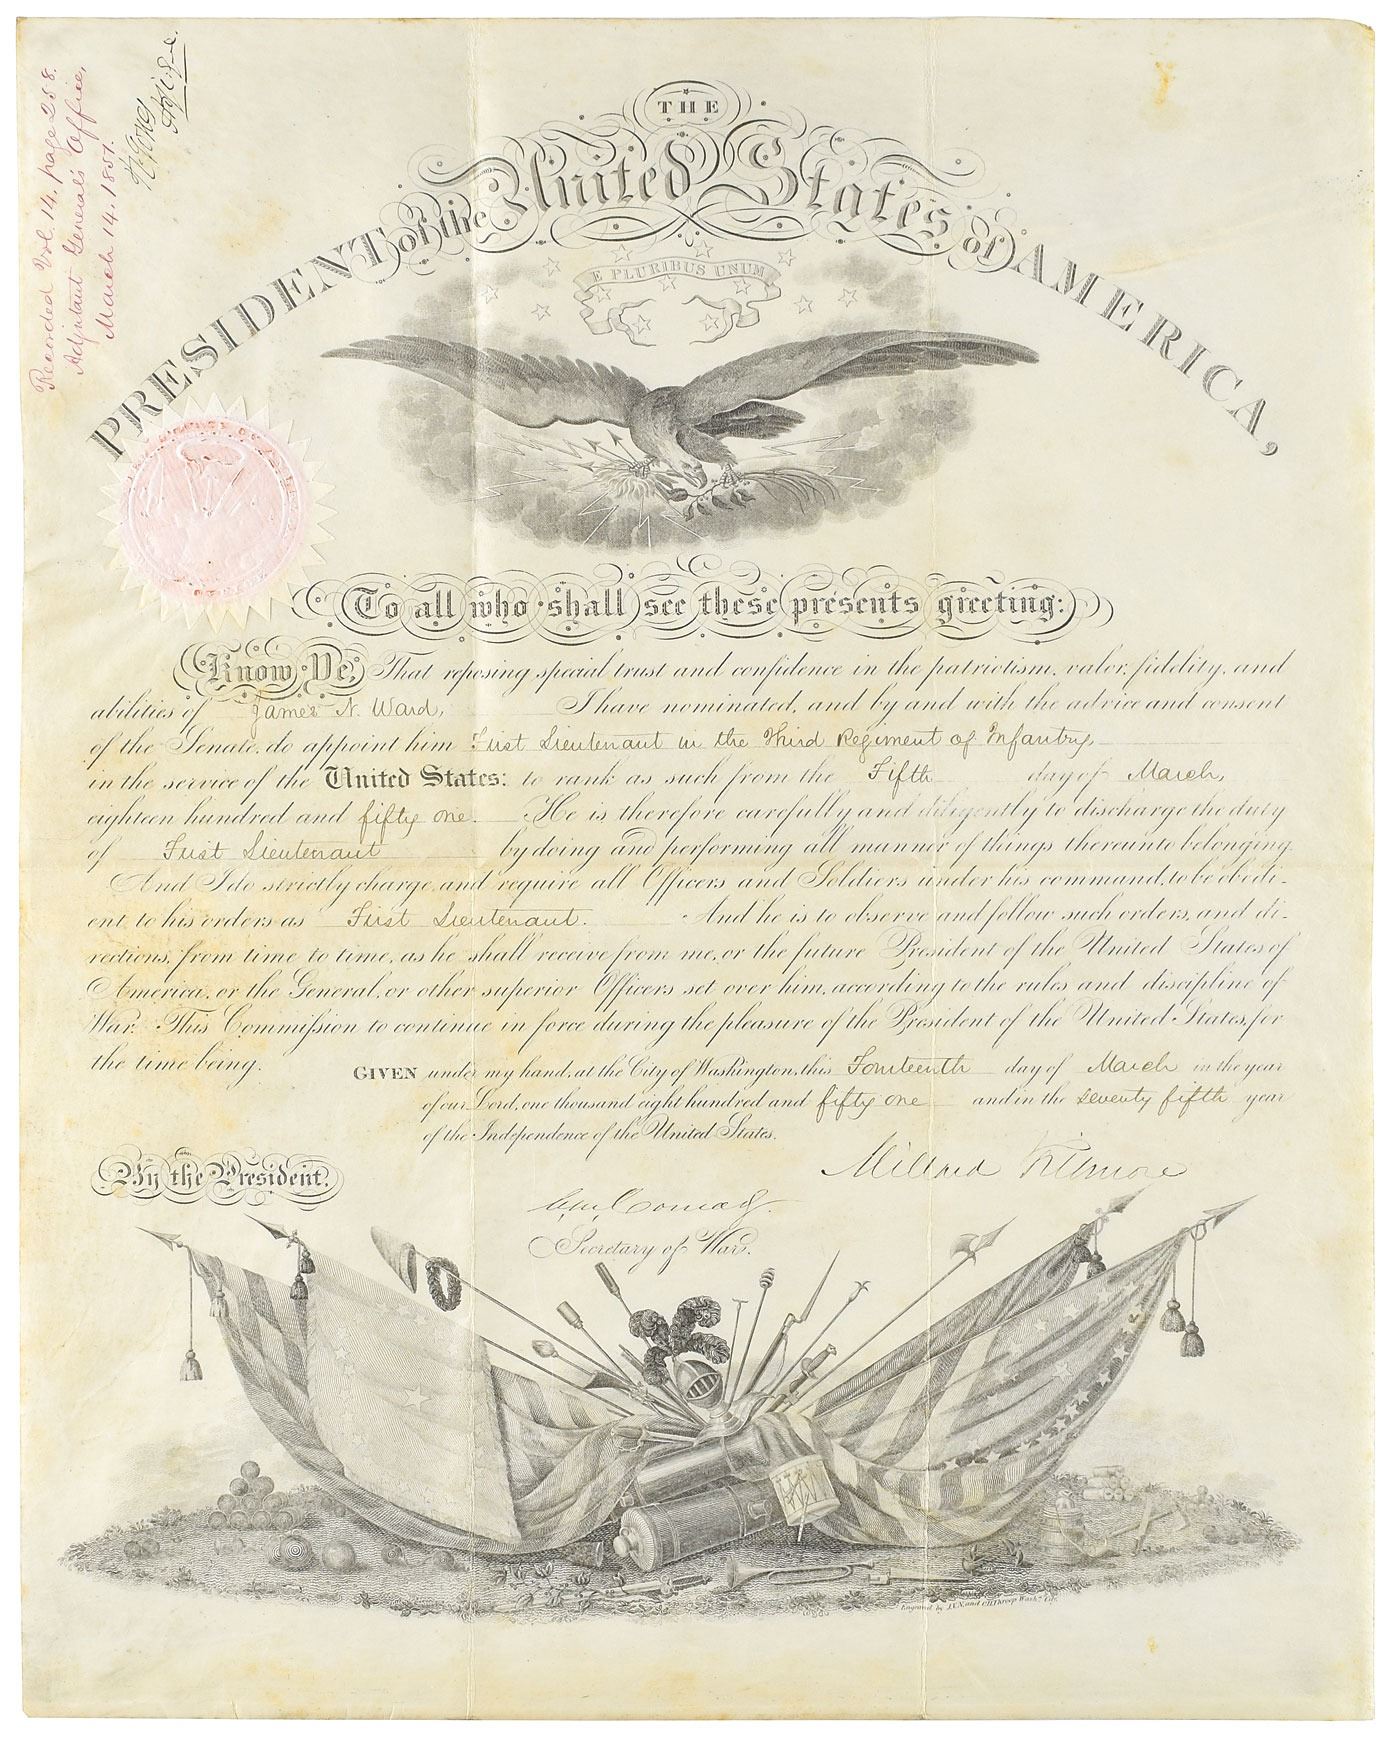 Recorded Vol. 14, page 258.
Adjutant General's Office,
March 14. 1851.
R. Jones
THE
PRESIDENT of the United States of AMERICA,
E PLURIBUS UNUM
To all who shall see these presents greeting:
Know Ye, That reposing special trust and confidence in the patriotism, valor, fidelity, and
abilities of James N. Ward, I have nominated, and by and with the advice and consent
of the Senate, do appoint him First Lieutenant in the Third Regiment of Infantry,
in the service of the United States: to rank as such from the Fifth day of March,
eighteen hundred and fifty one. He is therefore carefully and diligently to discharge the duty
of First Lieutenant by doing and performing all manner of things thereunto belonging.
And I do strictly charge, and require all Officers and Soldiers under his command, to be obedi-
ent to his orders as First Lieutenant. And he is to observe and follow such orders, and di-
rections, from time to time, as he shall receive from me, or the future President of the United States of
America, or the General, or other superior Officers set over him, according to the rules and discipline of
War. This Commission to continue in force during the pleasure of the President of the United States, for
the time being.
GIVEN under my hand, at the City of Washington, this Fourteenth day of March in the year
of our Lord, one thousand eight hundred and fifty one and in the seventy fifth year
of the Independence of the United States.
By the President.
Millard Fillmore
C. M. Conrad
Secretary of War.
Engraved by J.V.N. and O.H. Throop Washn. City.